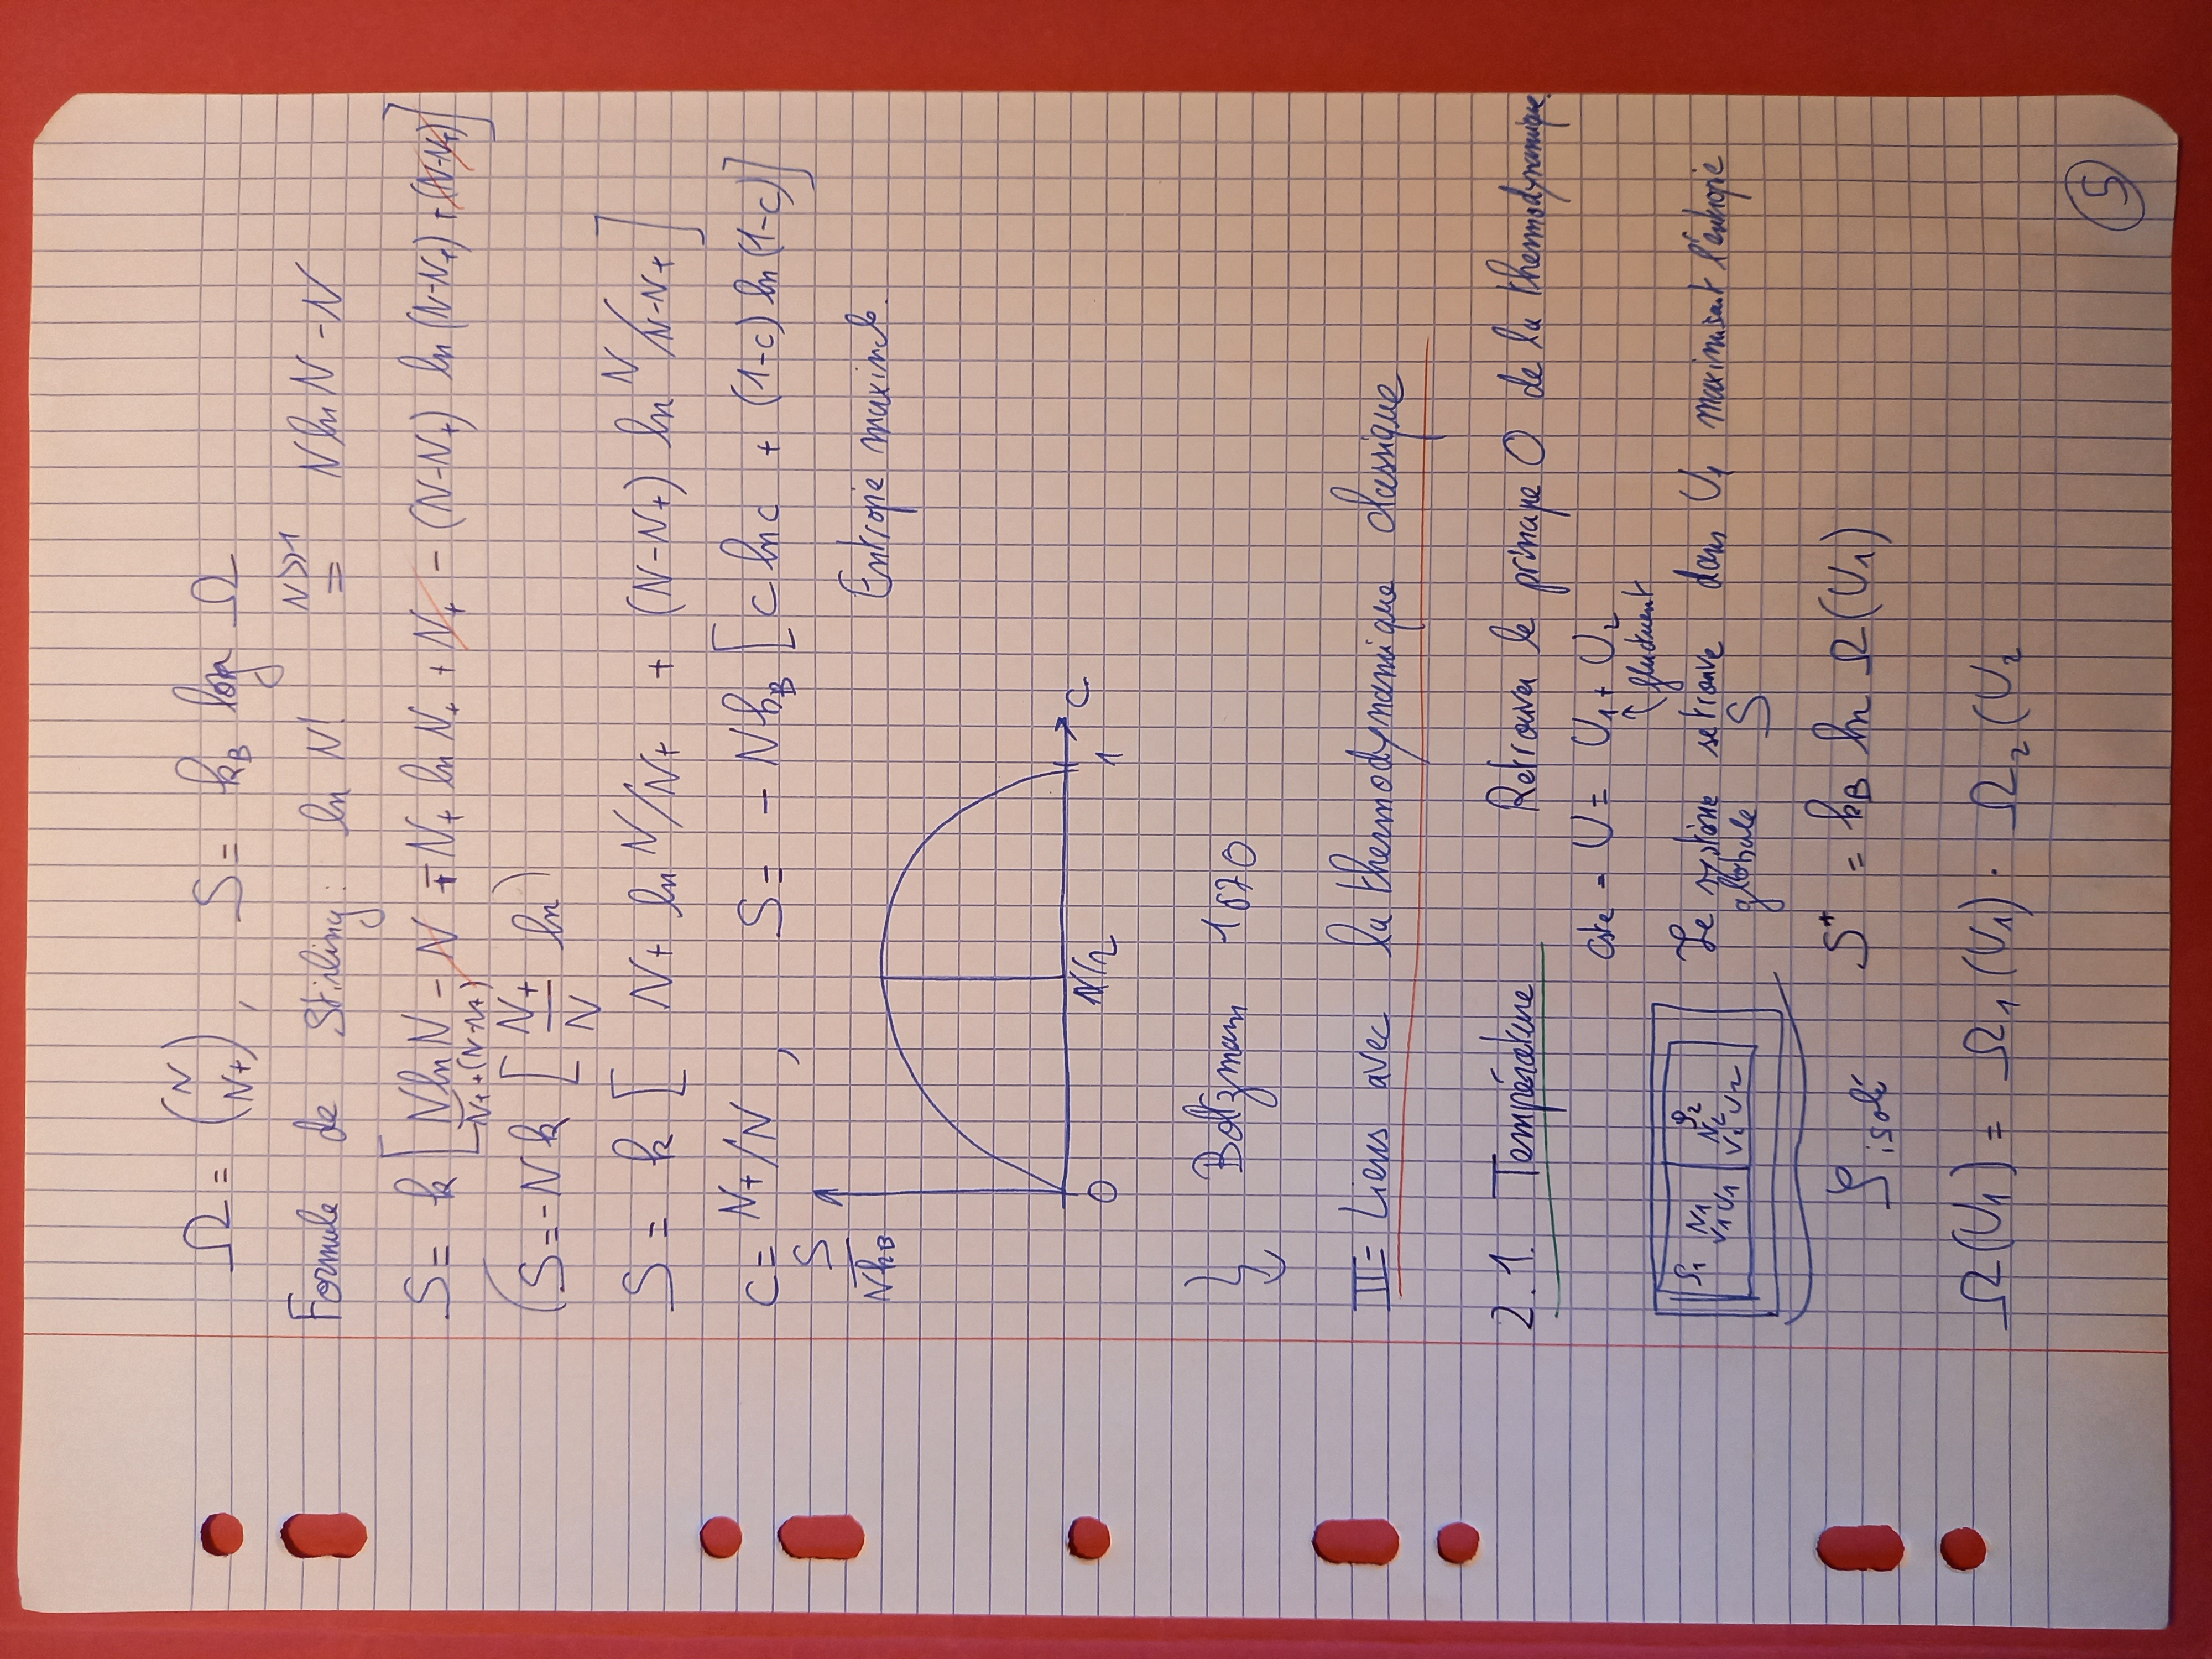 Ω = (N N+), S = kB log Ω
Formule de Stirling: ln N! =^{N>>1} N ln N - N
S = k [N ln N - N ∓ N+ ln N+ + N+ - (N-N+) ln (N-N+) + (N-N+)]
N+ + (N-N+)
(S = -Nk [N+/N ln)
S = k [N+ ln N/N+ + (N-N+) ln N/N-N+]
C = N+/N , S = - N kB [c ln c + (1-c) ln (1-c)]
S/NkB
Entropie maximale.
0 N/2 1 C
↳ Boltzmann 1870
II = Liens avec la thermodynamique classique
2.1. Température Retrouver le principe 0 de la thermodynamique.
cste = U = U1 + U2
↑ fluctuent
S1 N1 V1 U1 | S2 N2 V2 U2
Le système se trouve dans U1 maximisant l'entropie
globale S
S isolé S* = kB ln Ω(U1)
Ω(U1) = Ω1(U1) . Ω2(U2
5